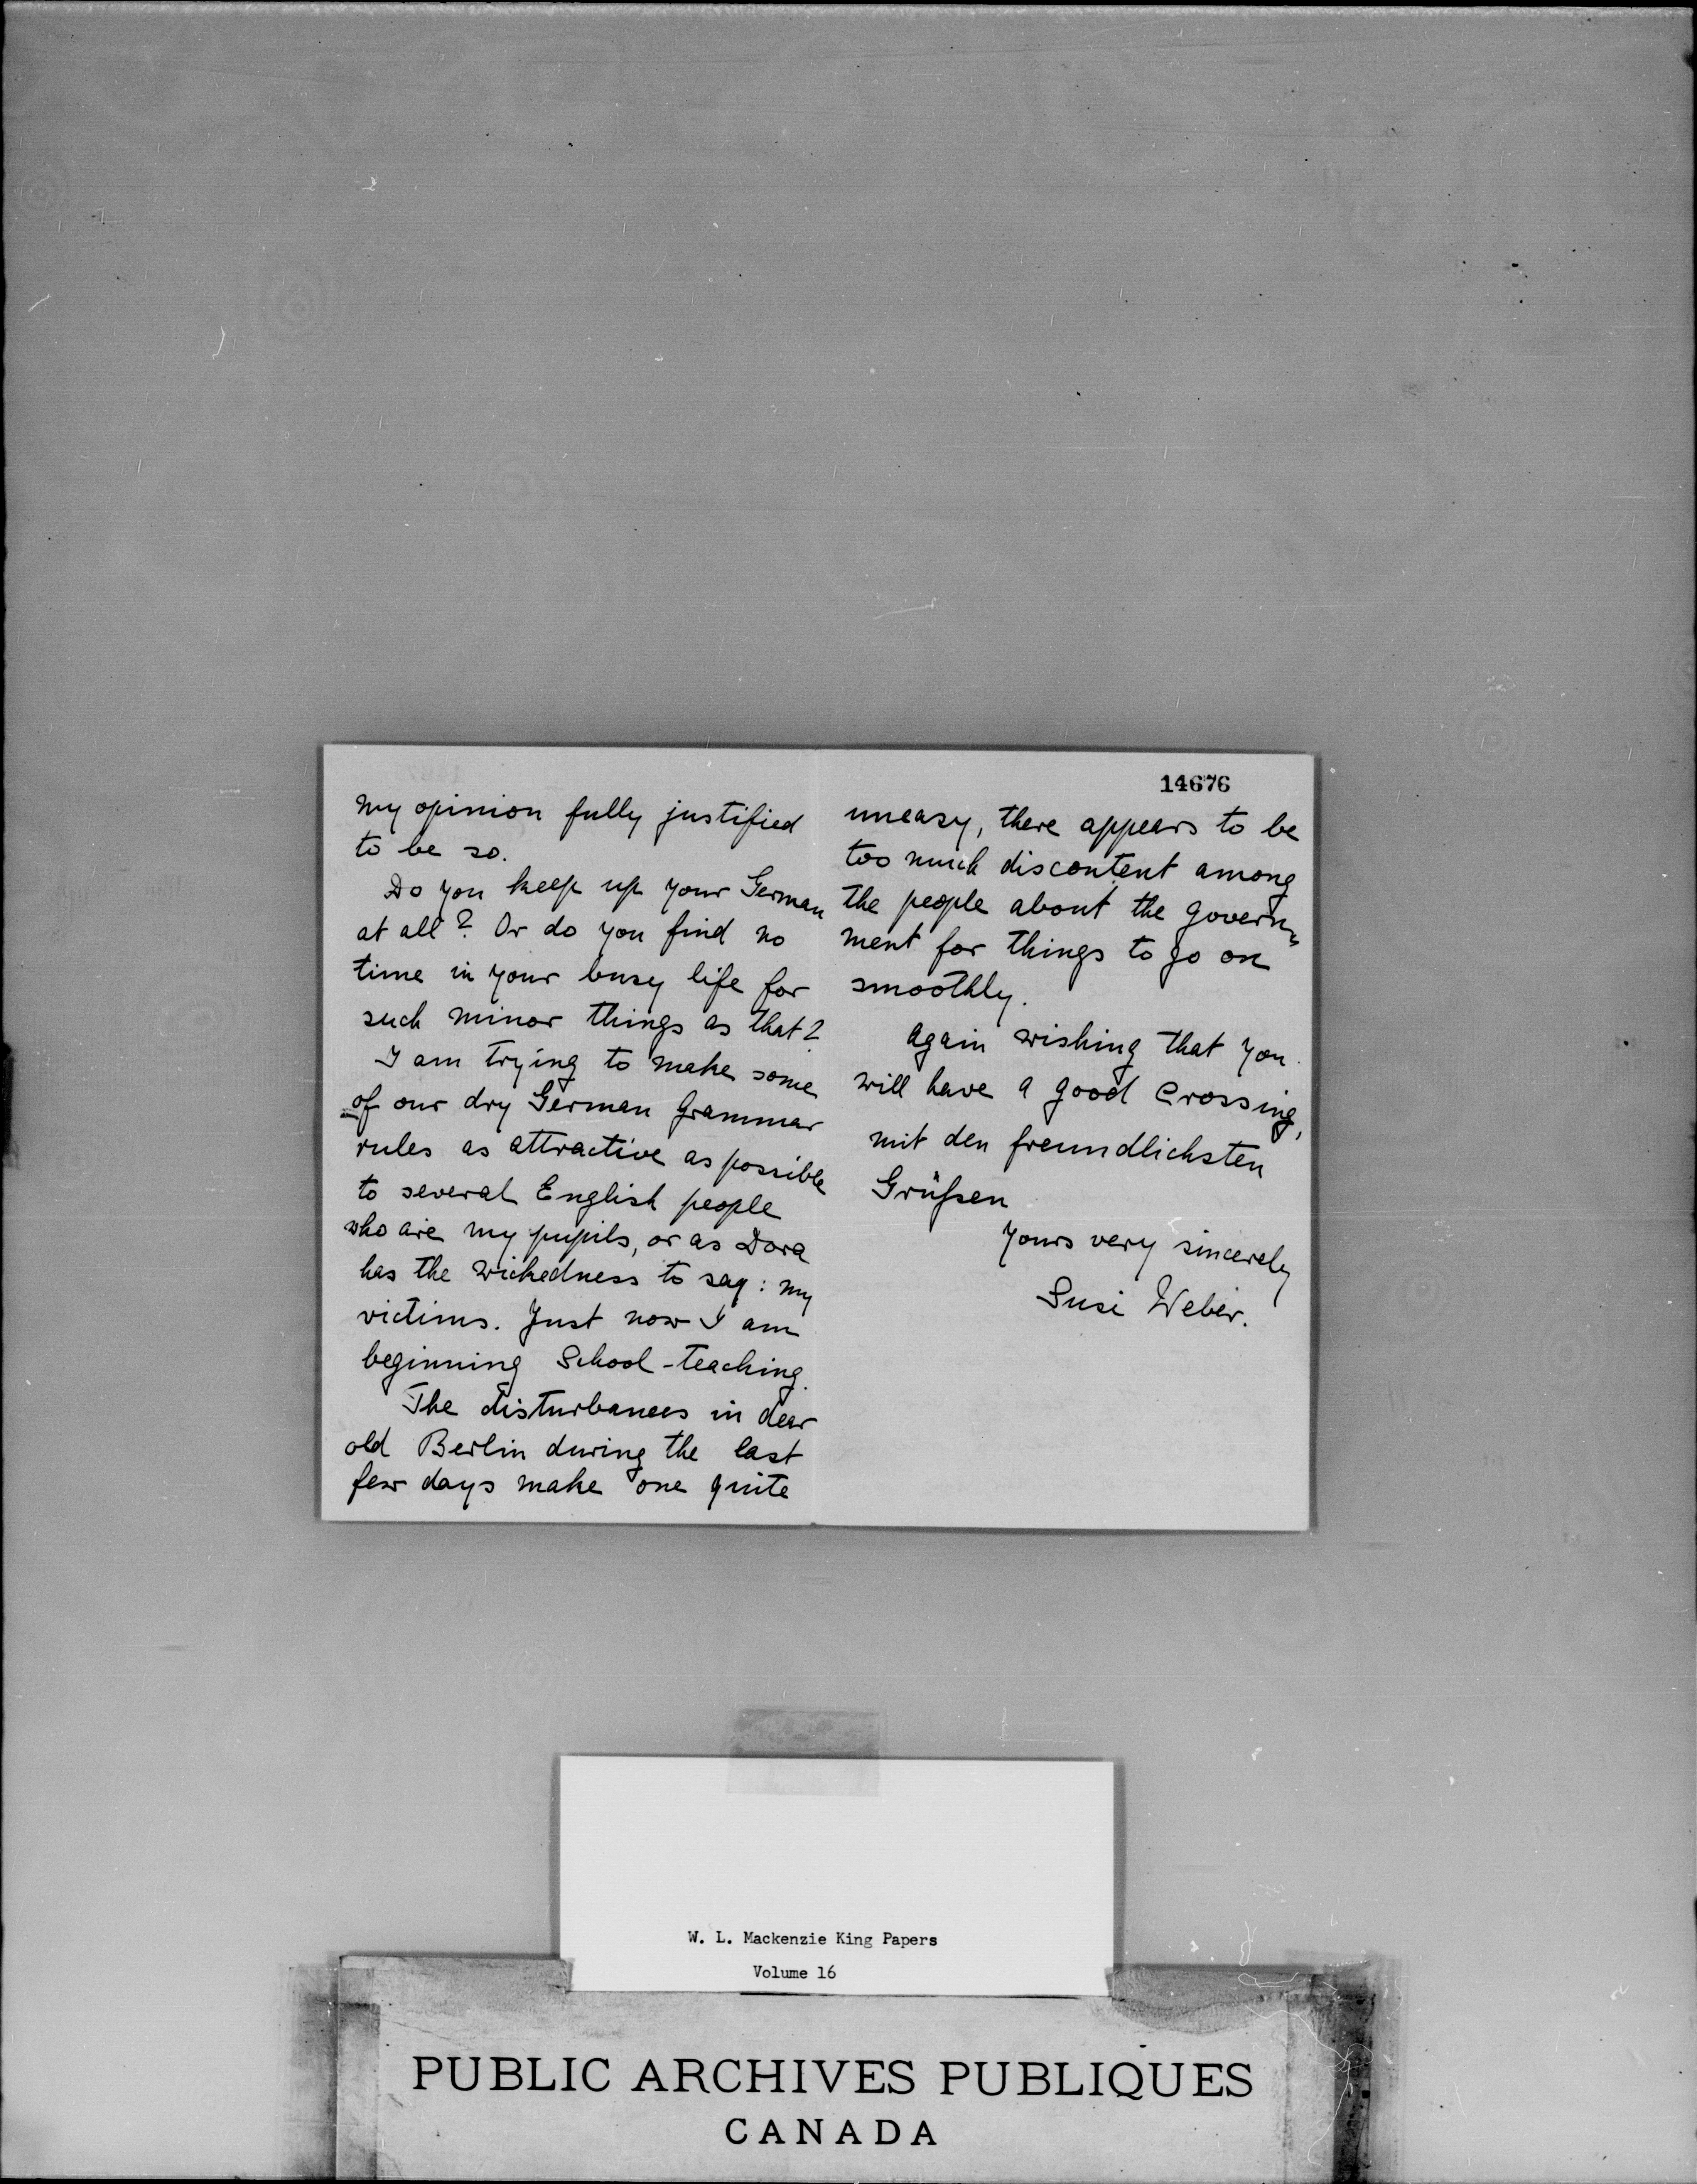 my opinion fully justified
to be so.
Do you keep up your German
at all? Or do you find no
time in your busy life for
such minor things as that?
I am trying to make some
of our dry German grammar
rules as attractive as possible
to several English people
who are my pupils, or as Dora
has the wickedness to say: my
victims. Just now I am
beginning School-teaching.
The disturbances in dear
old Berlin during the last
few days make one quite
14676
uneasy, there appears to be
too much discontent among
the people about the govern-
ment for things to go on
smoothly.
Again wishing that you
will have a good crossing,
mit den freundlichsten
Grüßen
Yours very sincerely
Susi Weber.
W. L. Mackenzie King Papers
Volume 16
PUBLIC ARCHIVES PUBLIQUES
CANADA